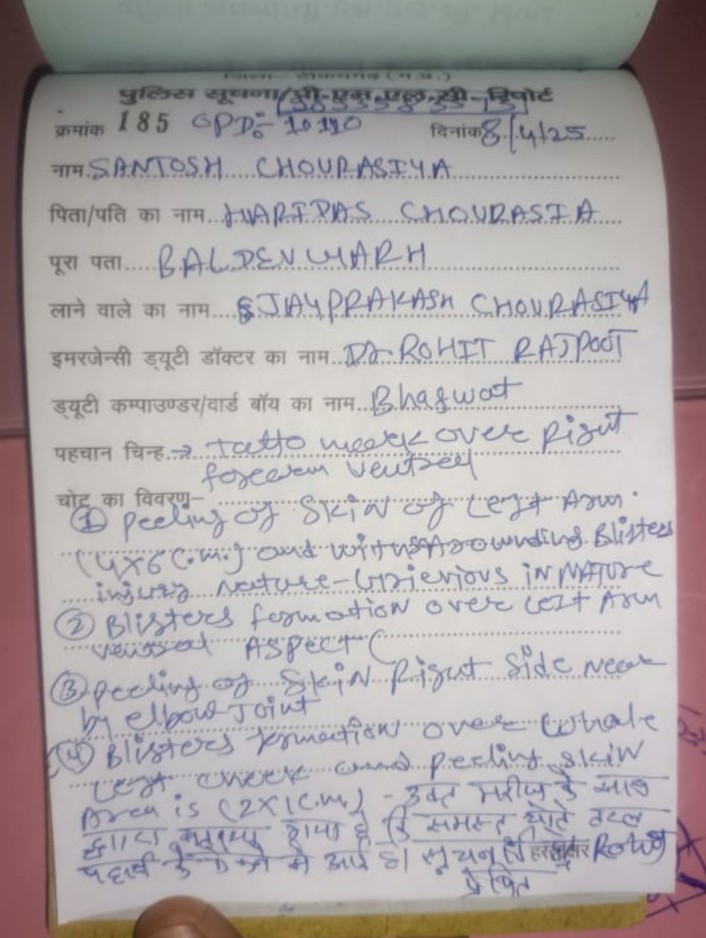 पुलिस सूचना/प्री-एम.एल.सी-रिपोर्ट
क्रमांक 185 OPD:- 10190 दिनांक 8/4/25
नाम SANTOSH CHOURASIYA
पिता/पति का नाम HARIDAS CHOURASIA
पूरा पता BALDEVGARH
लाने वाले का नाम JAYPRAKASH CHOURASIYA
इमरजेन्सी ड्यूटी डॉक्टर का नाम Dr. ROHIT RAJPOOT
ड्यूटी कम्पाउण्डर/वार्ड बॉय का नाम Bhagwat
पहचान चिन्ह → Tatto mark over Right
forearm ventral
चोट का विवरण–
① Peeling of Skin of Left Arm.
(4x6 c.m.) and with surrounding Blisters
injury nature - Grievious in NATURE
② Blisters formation over left Arm
ASPECT (
③ Peeling of Skin Right Side near
by elbow Joint
④ Blisters formation over whole
Left cheek and peeling skin
Area is (2x1 c.m.) - उक्त मरीज के साथ
है कि समस्त चोटे तरल
पदार्थ के से आई है। सूचनार्थ हस्ताक्षर Rohit
प्रेषित